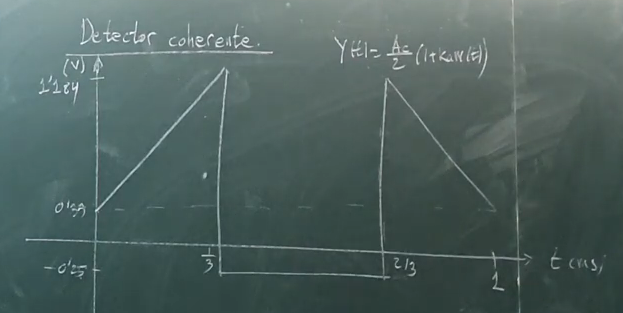 Detector coherente.
Y(t)= Ac/2 (1+kam(t))
(V)
1'184
-0'25
1/3
2/3
1
t (ms)